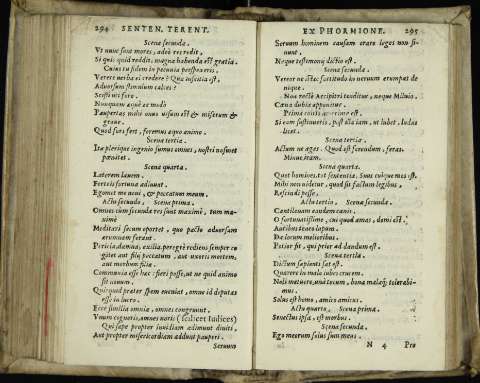 294 SENTEN. TERENT.
Scena secunda.
Vt nunc sunt mores, adeò res redit,
Si quis quid reddit, magna habenda est gratia.
Cuius tu fidem in pecunia perspexeris,
Verere verba ei credere? Quæ inscitia est,
Aduorsum stimulum calces?
Scisti uti foro.
Nunquam æquè ac modò
Paupertas mihi onus uisum est & miserum &
graue.
Quod fors fert, feremus æquo animo.
Scena tertia.
Ita plerique ingenio sumus omnes, nostri nosmet
pœnitet.
Scena quarta.
Laterem lauem.
Fortes fortuna adiuuat.
Egomet me noui, & peccatum meum.
Actu secundo, Scena prima.
Omnes cum secundæ res sunt maximè, tum ma-
ximè
Meditari secum oportet, quo pacto aduorsam
ærumnam ferant.
Pericla, damna, exilia. peregrè rediens semper co
gitet aut filij peccatum, aut uxoris mortem,
aut morbum filiæ.
Communia esse hæc: fieri posse, ut ne quid animo
sit nouum.
Quicquid præter spem eueniat, omne id deputes
esse in lucro.
Ecce similia omnia, omnes congruunt.
Vnum cognoris, omnes noris (scilicet iudices)
Qui sæpe propter inuidiam adimunt diuiti,
Aut propter misericordiam addunt pauperi.
Seruum
EX PHORMIONE. 295
Seruum hominem causam orare leges non si-
nunt.
Neque testimonij dictio est.
Scena secunda.
Vereor ne istæc fortitudo in neruum erumpat de
nique.
Non rectè Accipitri tenditur, neque Miluio.
Cœna dubia apponitur.
Prima coitio acerrima est.
Si eam sustinueris, post illa iam, ut lubet, ludas
licet.
Scena tertia.
Actum ne agas. Quod est ferendum, feras.
Minuē iram.
Scena quarta.
Quot homines, tot sententiæ. Suus cuique mos est.
Mihi non uidetur, quod sit factum legibus,
Rescindi posse.
Actu tertio, Scena secunda.
Cantilenam eandem canis.
O fortunatissime, cui quod amas, domi est.
Auribus teneo lupum.
De lucrum molioribus.
Potior sit, qui prior ad dandum est.
Scena tertia.
Dictum sapienti sat est.
Quærere in malo iubes crucem.
Noli metuere, unà tecum, bona mala; tolerabi-
mus.
Solus est homo, amico amicus.
Actu quarto, Scena prima.
Senectus ipsa, est morbus.
Scena secunda.
Ego meorum solus sum meus.
N 4 Pro